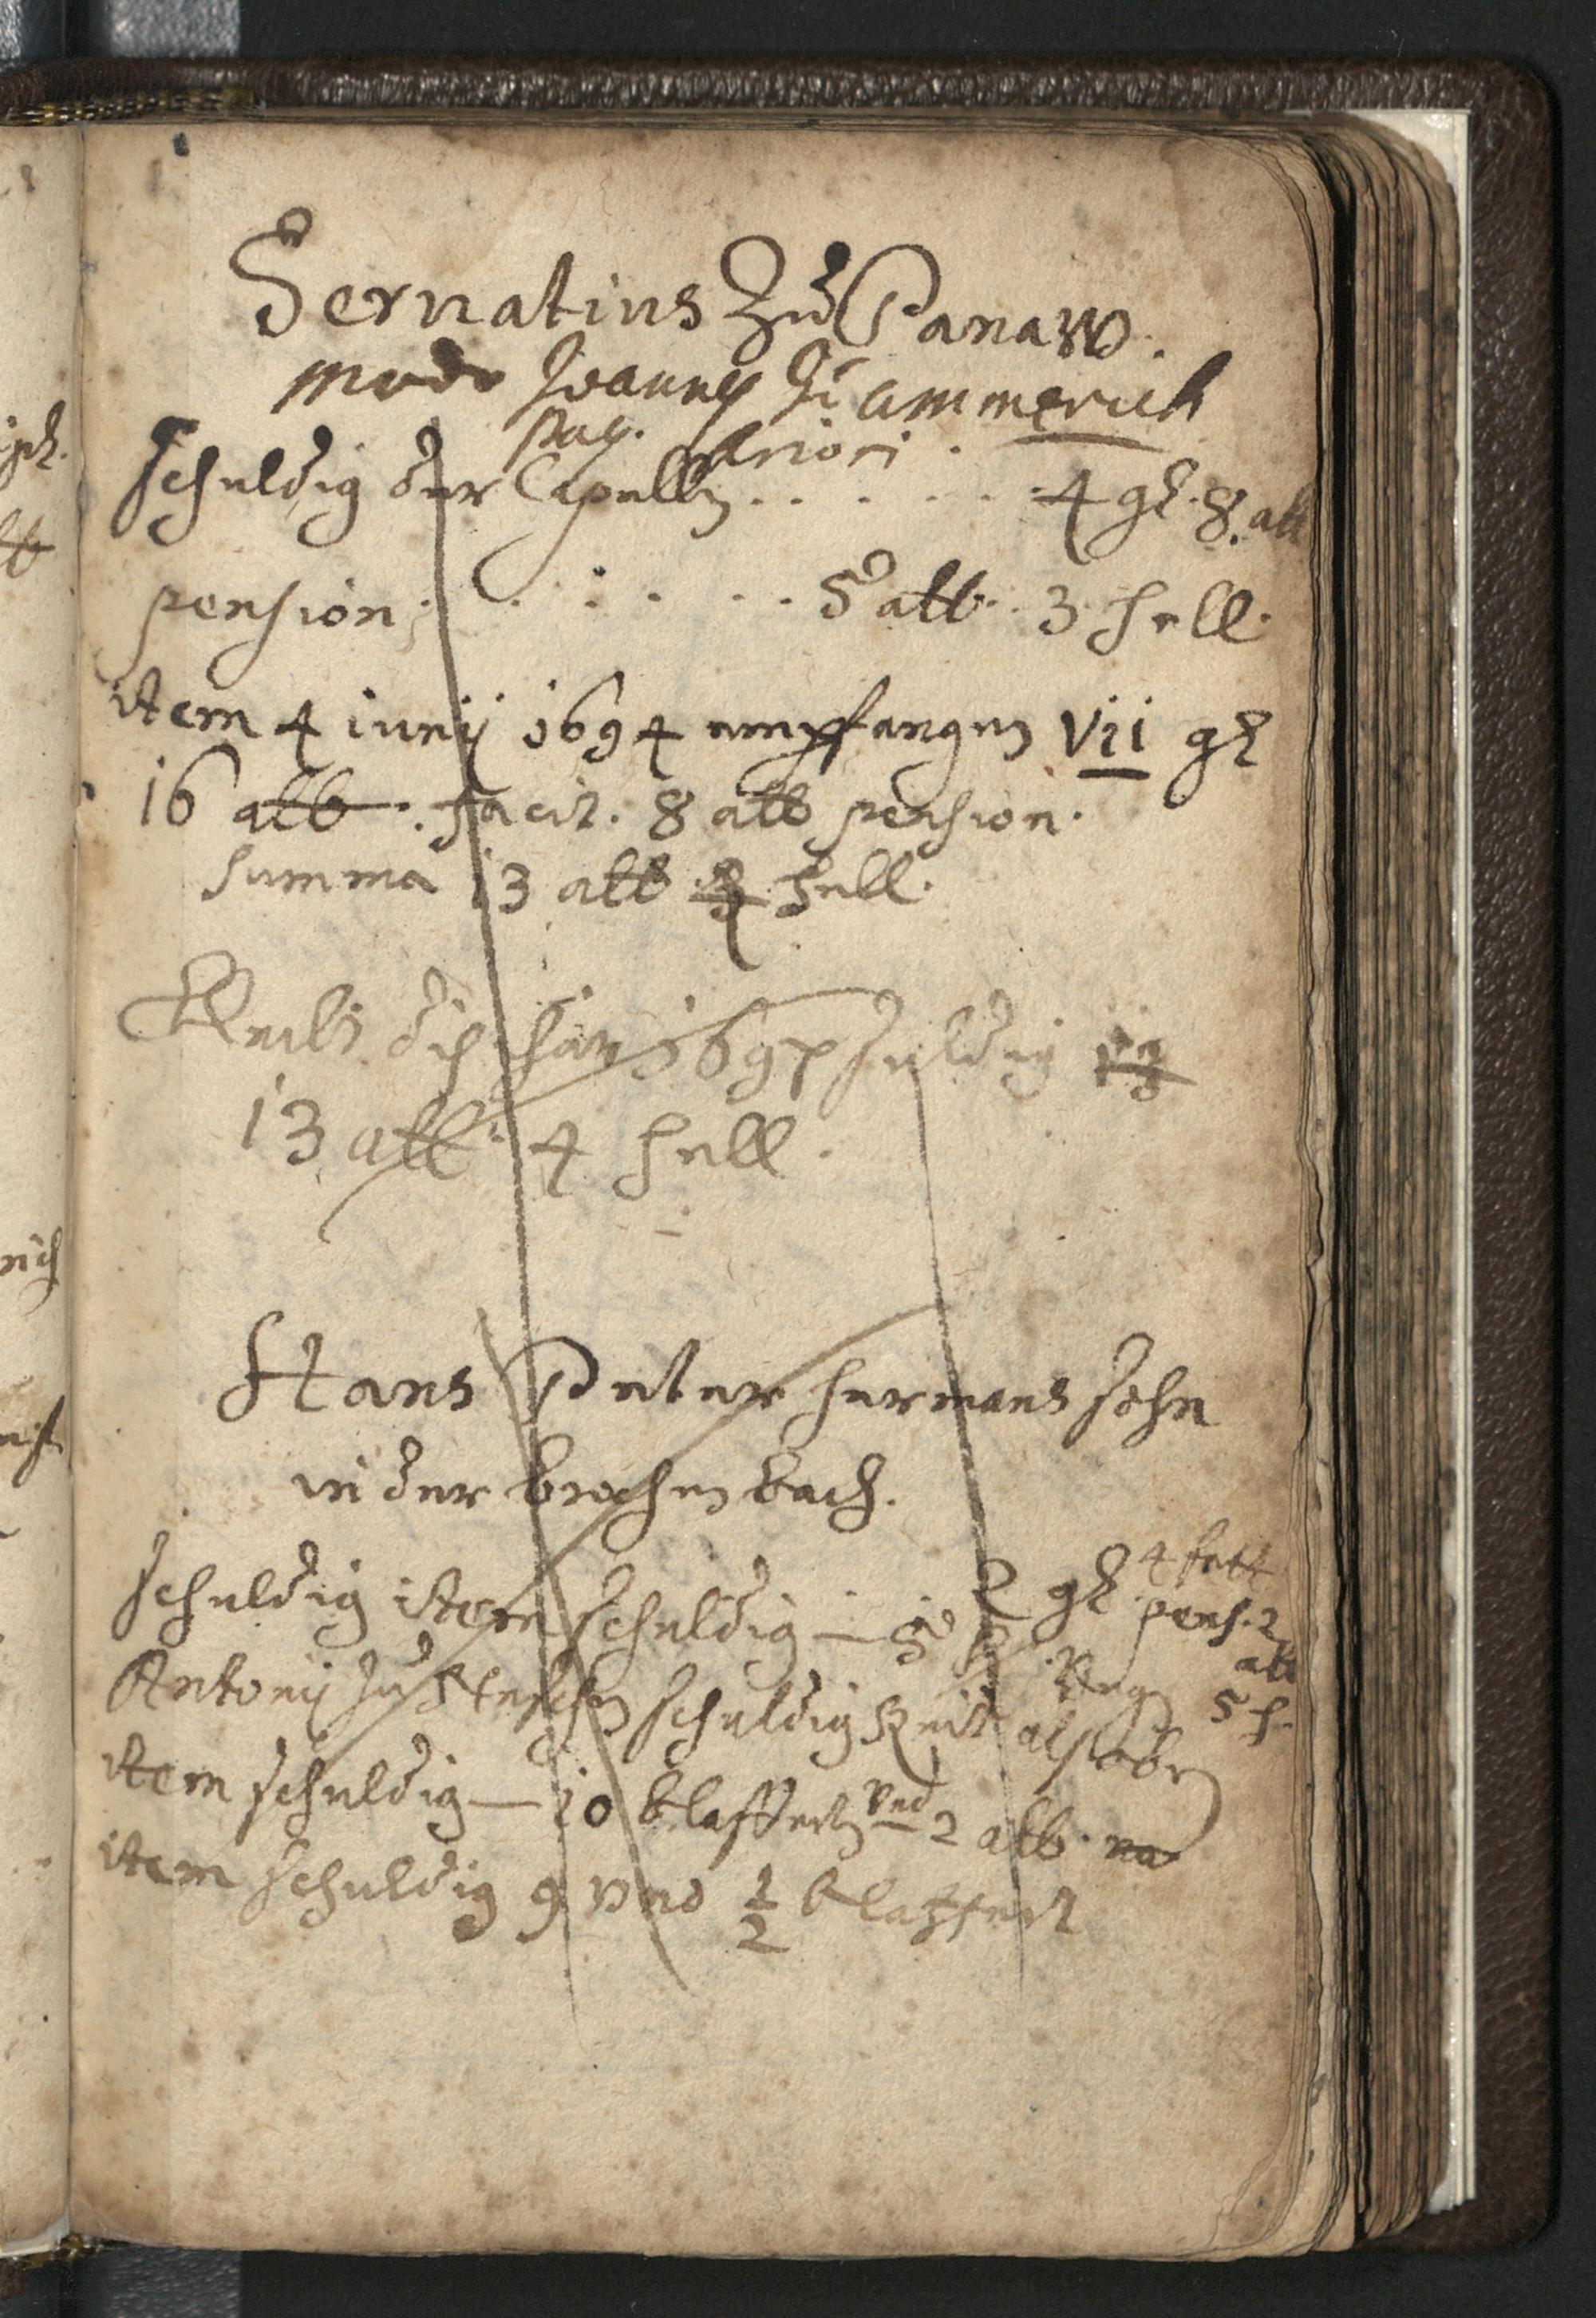 Servatius Zu Panaw.
modo Joannes Zu Ammerich
pag. priori.
schuldig der Capellen . . . . . . 4 gl. 8. alb
pension . . . . . . 5 alb. 3 hell.
item 4 iunij 1694 empfangen Vii gl
16 alb. facit. 8 alb pension.
summa 13 alb 3 hell.
Bleibt diß Jar 169 schuldig
13 alb. 4 hell.
Hans Peter hermans sohn
in der brochen bach.
schuldig item schuldig — 2 gl 4 fett
pens. 2 alb
5 h.
Antonij zu schuldig Zeit als oben
item schuldig — 10 blaffert und 2 alb.
item schuldig 9 und 1/2 blaffert